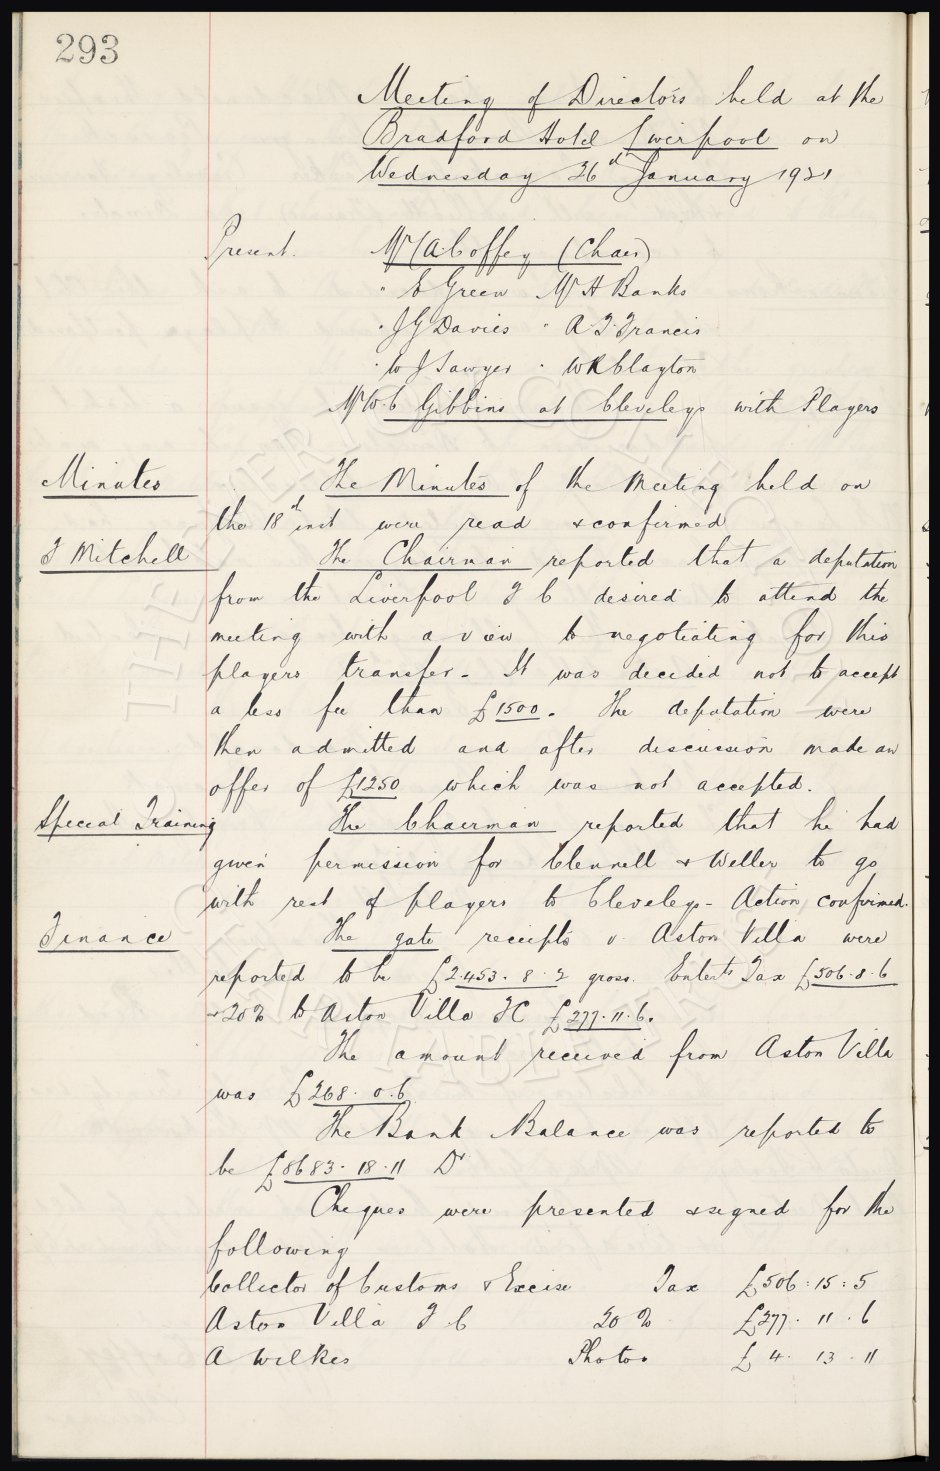 293
Meeting of Directors held at the
Bradford Hotel Liverpool on
Wednesday 26th January 1921
Present. Mr A Coffey (Chair)
" E Green Mr H Banks
" J G Davies " A T Francis
" W J Sawyer " W R Clayton
Mr W C Gibbins at Cleveleys with Players
Minutes The Minutes of the Meeting held on
the 18th inst were read & confirmed
F Mitchell The Chairman reported that a deputation
from the Liverpool F C desired to attend the
meeting with a view to negotiating for this
players transfer. It was decided not to accept
a less fee than £1500. The deputation were
then admitted and after discussion made an
offer of £1250 which was not accepted.
Special Training The Chairman reported that he had
given permission for Clennell & Weller to go
with rest of players to Cleveleys - Action confirmed.
Finance The gate receipts v Aston Villa were
reported to be £2,453. 8. 2 gross. Entert's Tax £506. 8. 6
& 20% to Aston Villa FC £277. 11. 6.
The amount received from Aston Villa
was £268. 0. 6
The Bank Balance was reported to
be £8683. 18. 11 Dr
Cheques were presented & signed for the
following
Collector of Customs & Excise Tax £506 : 15 : 5
Aston Villa F. C 20 % £277. 11. 6
A Wilkes Photos £ 4. 13. 11
THE EVERTON COLLECTION